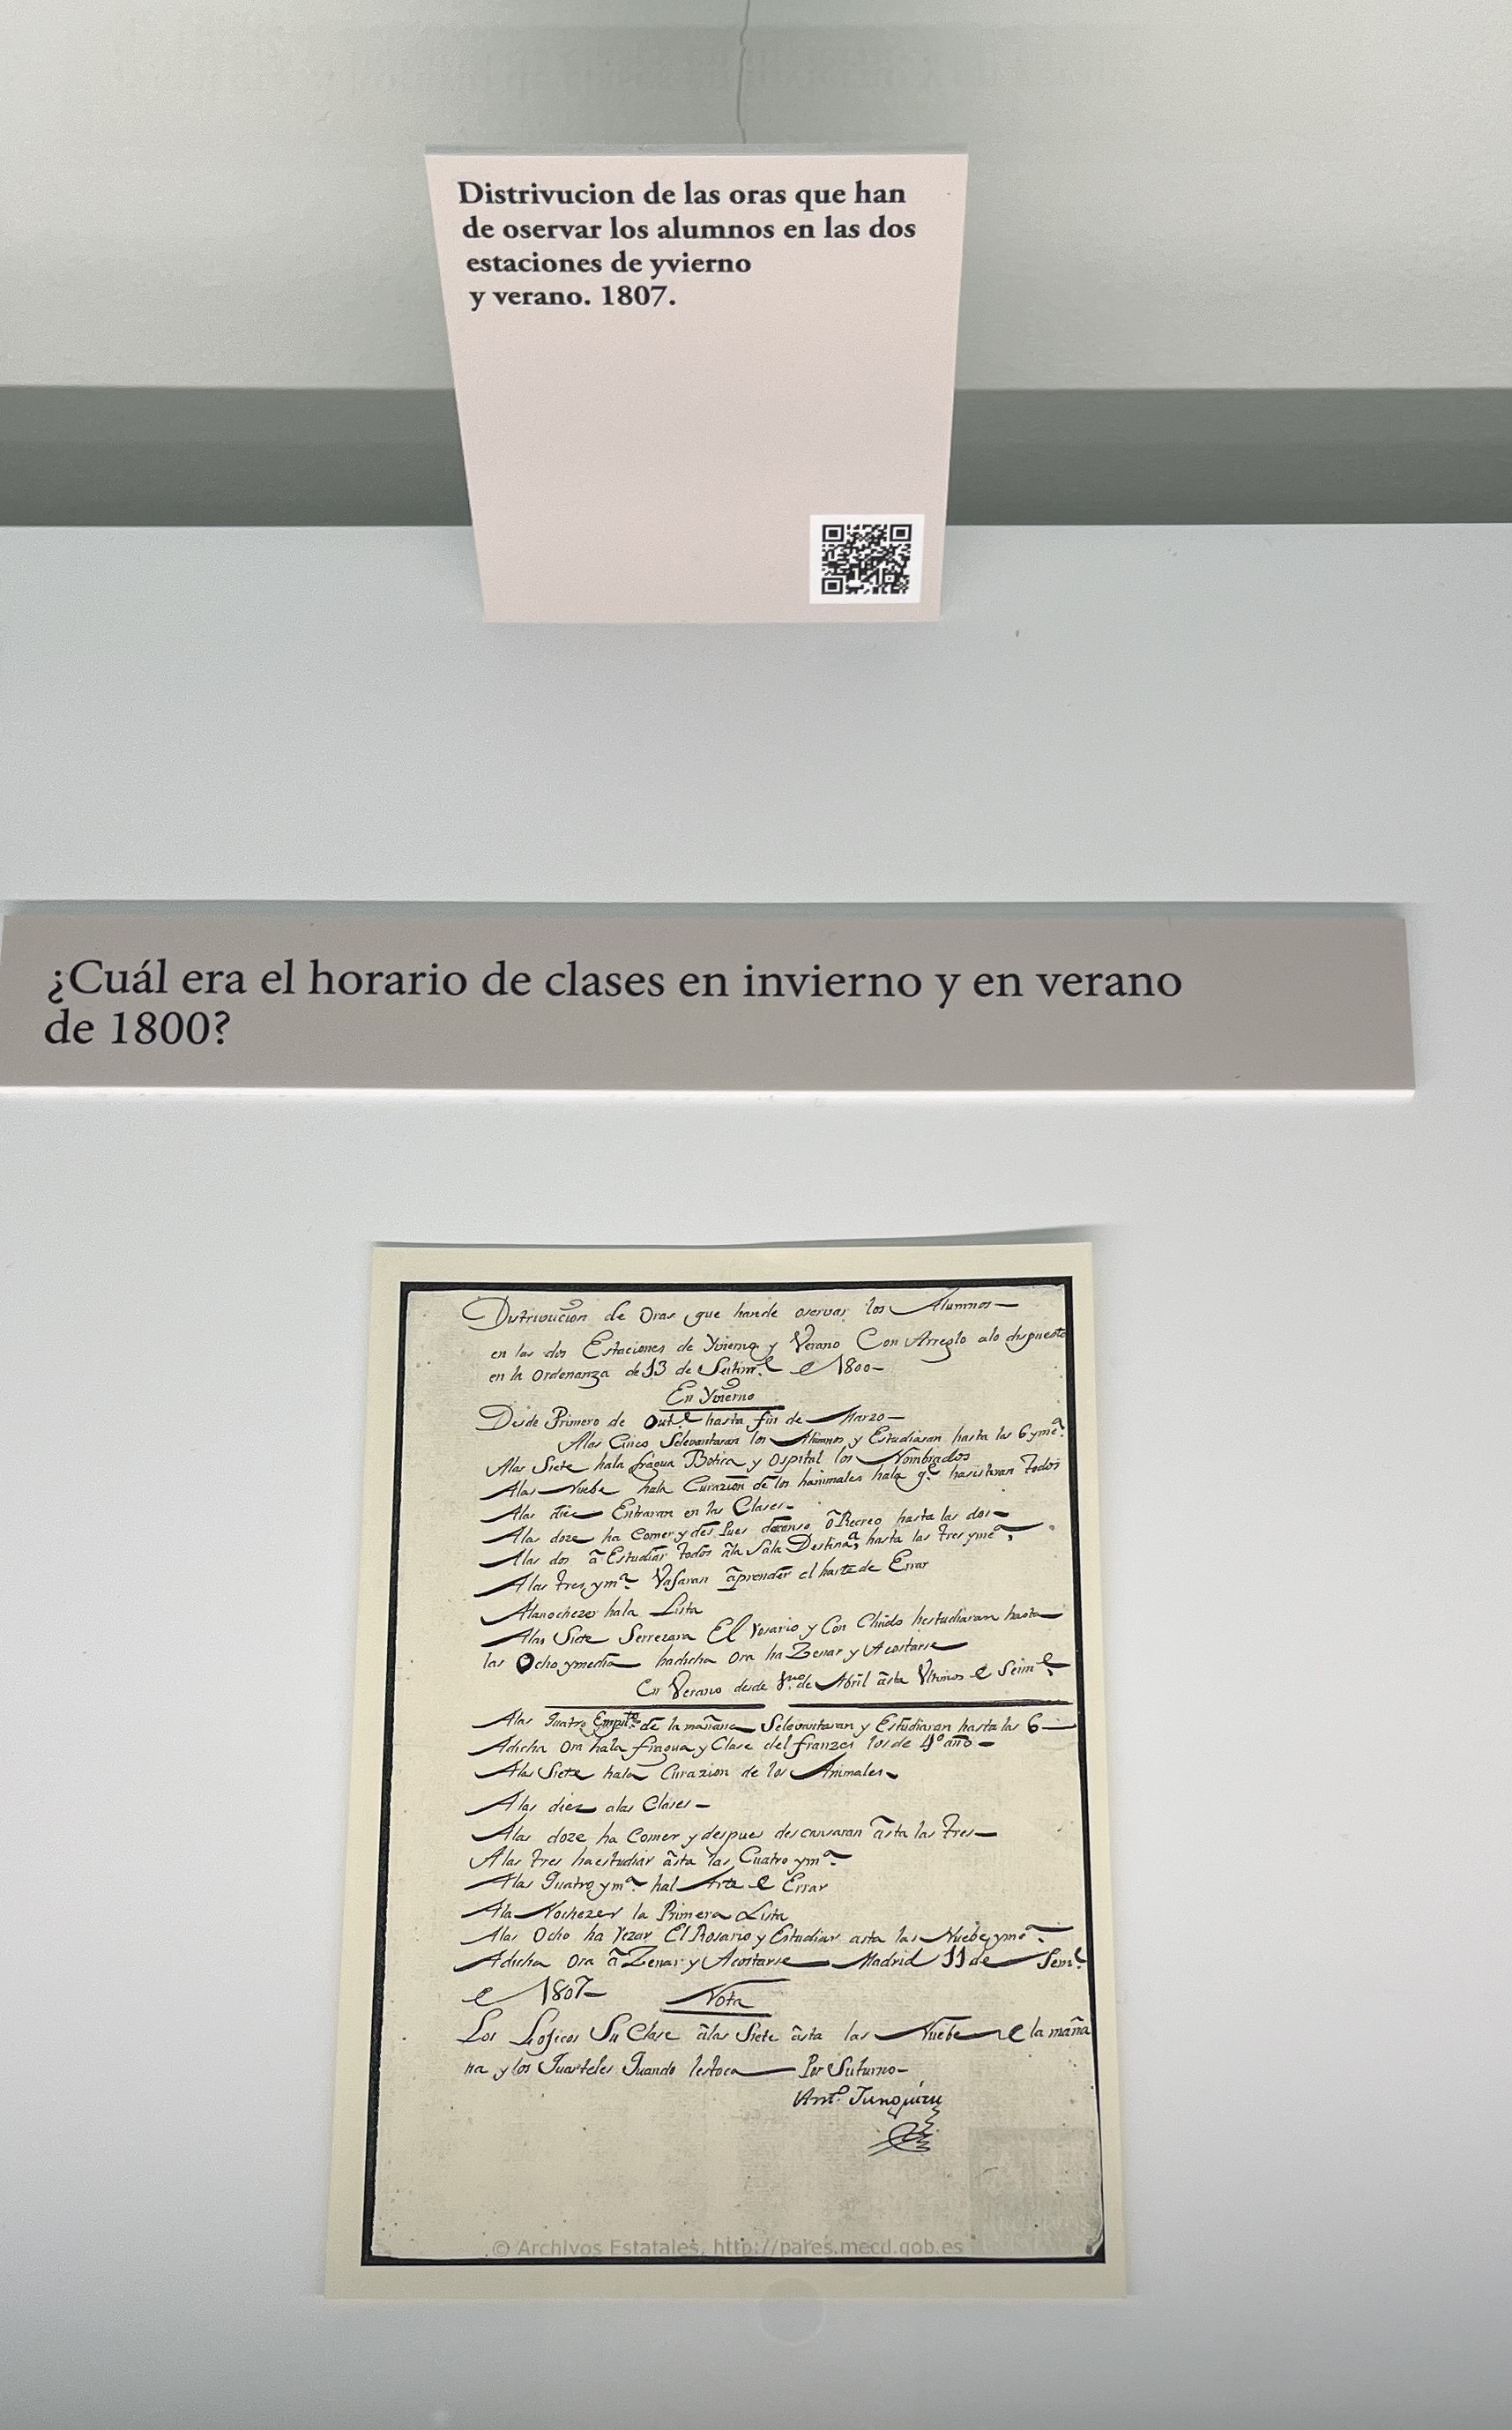 Distrivucion de las oras que han
de oservar los alumnos en las dos
estaciones de yvierno
y verano. 1807.
¿Cuál era el horario de clases en invierno y en verano
de 1800?
Distrivucion de Oras que hande oservar los Alumnos
en las dos Estaciones de Yvierno y Verano Con Arreglo alo dispuesto
en la Ordenanza de 13 de Setimᵉ e 1800
En Yvierno
Desde Primero de Outᵉ hasta fin de Marzo
Alas Cinco Selevantaran los Alumnos y Estudiaran hasta las 6 ymᵃ
Alas Siete hala fragua Botica y Ospital los Nombrados
Alas Nuebe hala Curazion de los hanimales hala qᵉ hasistiran todos
Alas diez Entraran en las Clases
Alas doze ha Comer y des Pues descanso ō Recreo hasta las dos
Alas dos ā Estudiar todos āla Sala Destinaᵃ hasta las tres ymᵃ
Alas tres ymᵃ Pasaran āprender el harte de Errar
Alanochezer hala Lista
Alas Siete Serrezara El Rosario y Con Cluido hestudiaran hasta
las Ocho ymedia hadicha Ora ha Zenar y Acostarse
En Verano desde 1ʳᵒ de Abril āsta Ultimos e Seimᵉ
Alas Quatro Empᵗᵒ de la mañana Selevantaran y Estudiaran hasta las 6
Adicha Ora hala fragua y Clase del franzes los de 4º año
Alas Siete hala Curazion de los Animales
Alas diez alas Clases
Alas doze ha Comer y despues descansaran āsta las tres
Alas tres haestudiar āsta las Cuatro ymᵃ
Alas Quatro ymᵃ hal Arte e Errar
Ala Nochezer la Primera Lista
Alas Ocho ha rezar El Rosario y Estudiar asta las Nuebe ymᵃ
Adicha Ora ā Zenar y Acostarse Madrid 11 de Semᵉ
e 1807 Nota
Los Su Clase ālas Siete āsta las Nuebe e la maña
na y los Quarteles Quando lestoca Por Suturno
Antº
© Archivos Estatales, http://pares.mecd.gob.es